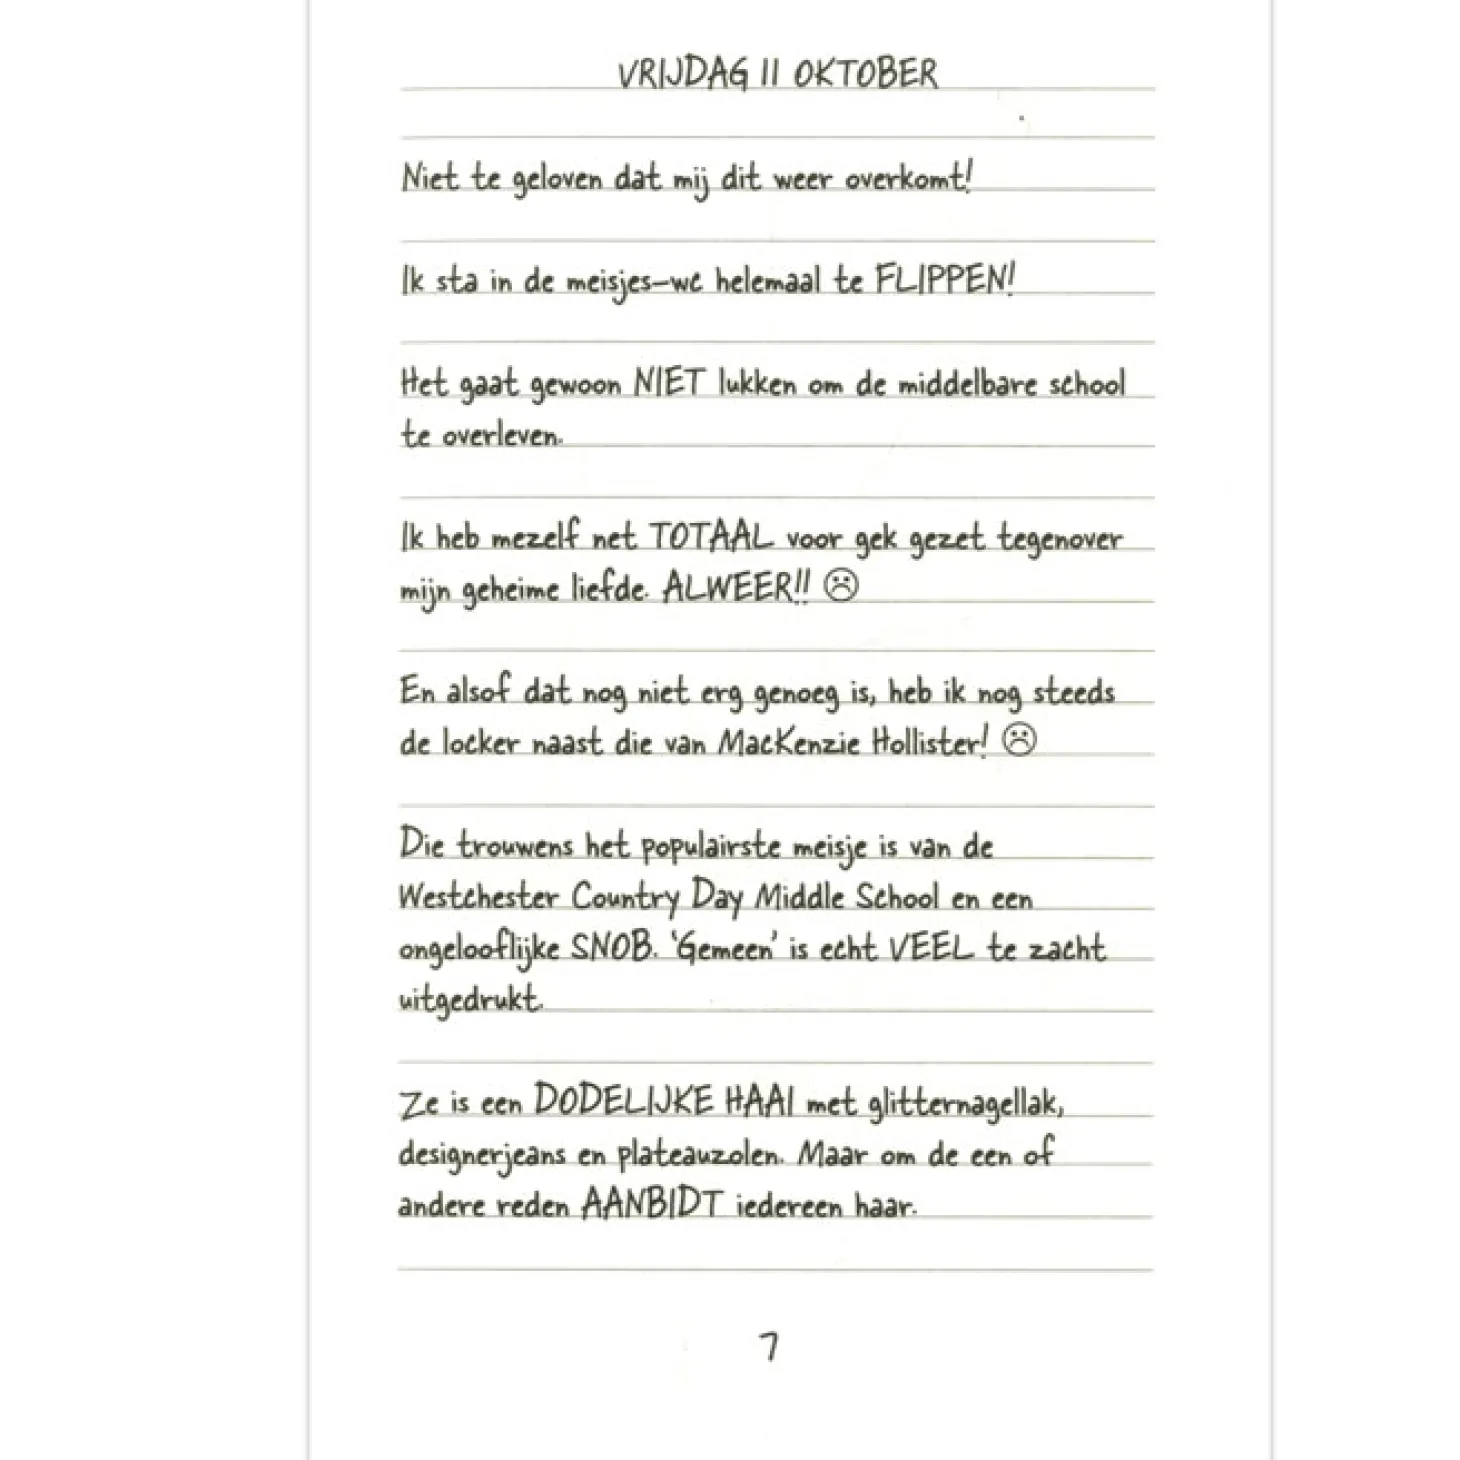 VRIJDAG 11 OKTOBER
Niet te geloven dat mij dit weer overkomt!
Ik sta in de meisjes-wc helemaal te FLIPPEN!
Het gaat gewoon NIET lukken om de middelbare school
te overleven.
Ik heb mezelf net TOTAAL voor gek gezet tegenover
mijn geheime liefde. ALWEER!! ☹
En alsof dat nog niet erg genoeg is, heb ik nog steeds
de locker naast die van MacKenzie Hollister! ☹
Die trouwens het populairste meisje is van de
Westchester Country Day Middle School en een
ongelooflijke SNOB. ‘Gemeen’ is echt VEEL te zacht
uitgedrukt.
Ze is een DODELIJKE HAAI met glitternagellak,
designerjeans en plateauzolen. Maar om de een of
andere reden AANBIDT iedereen haar.
7